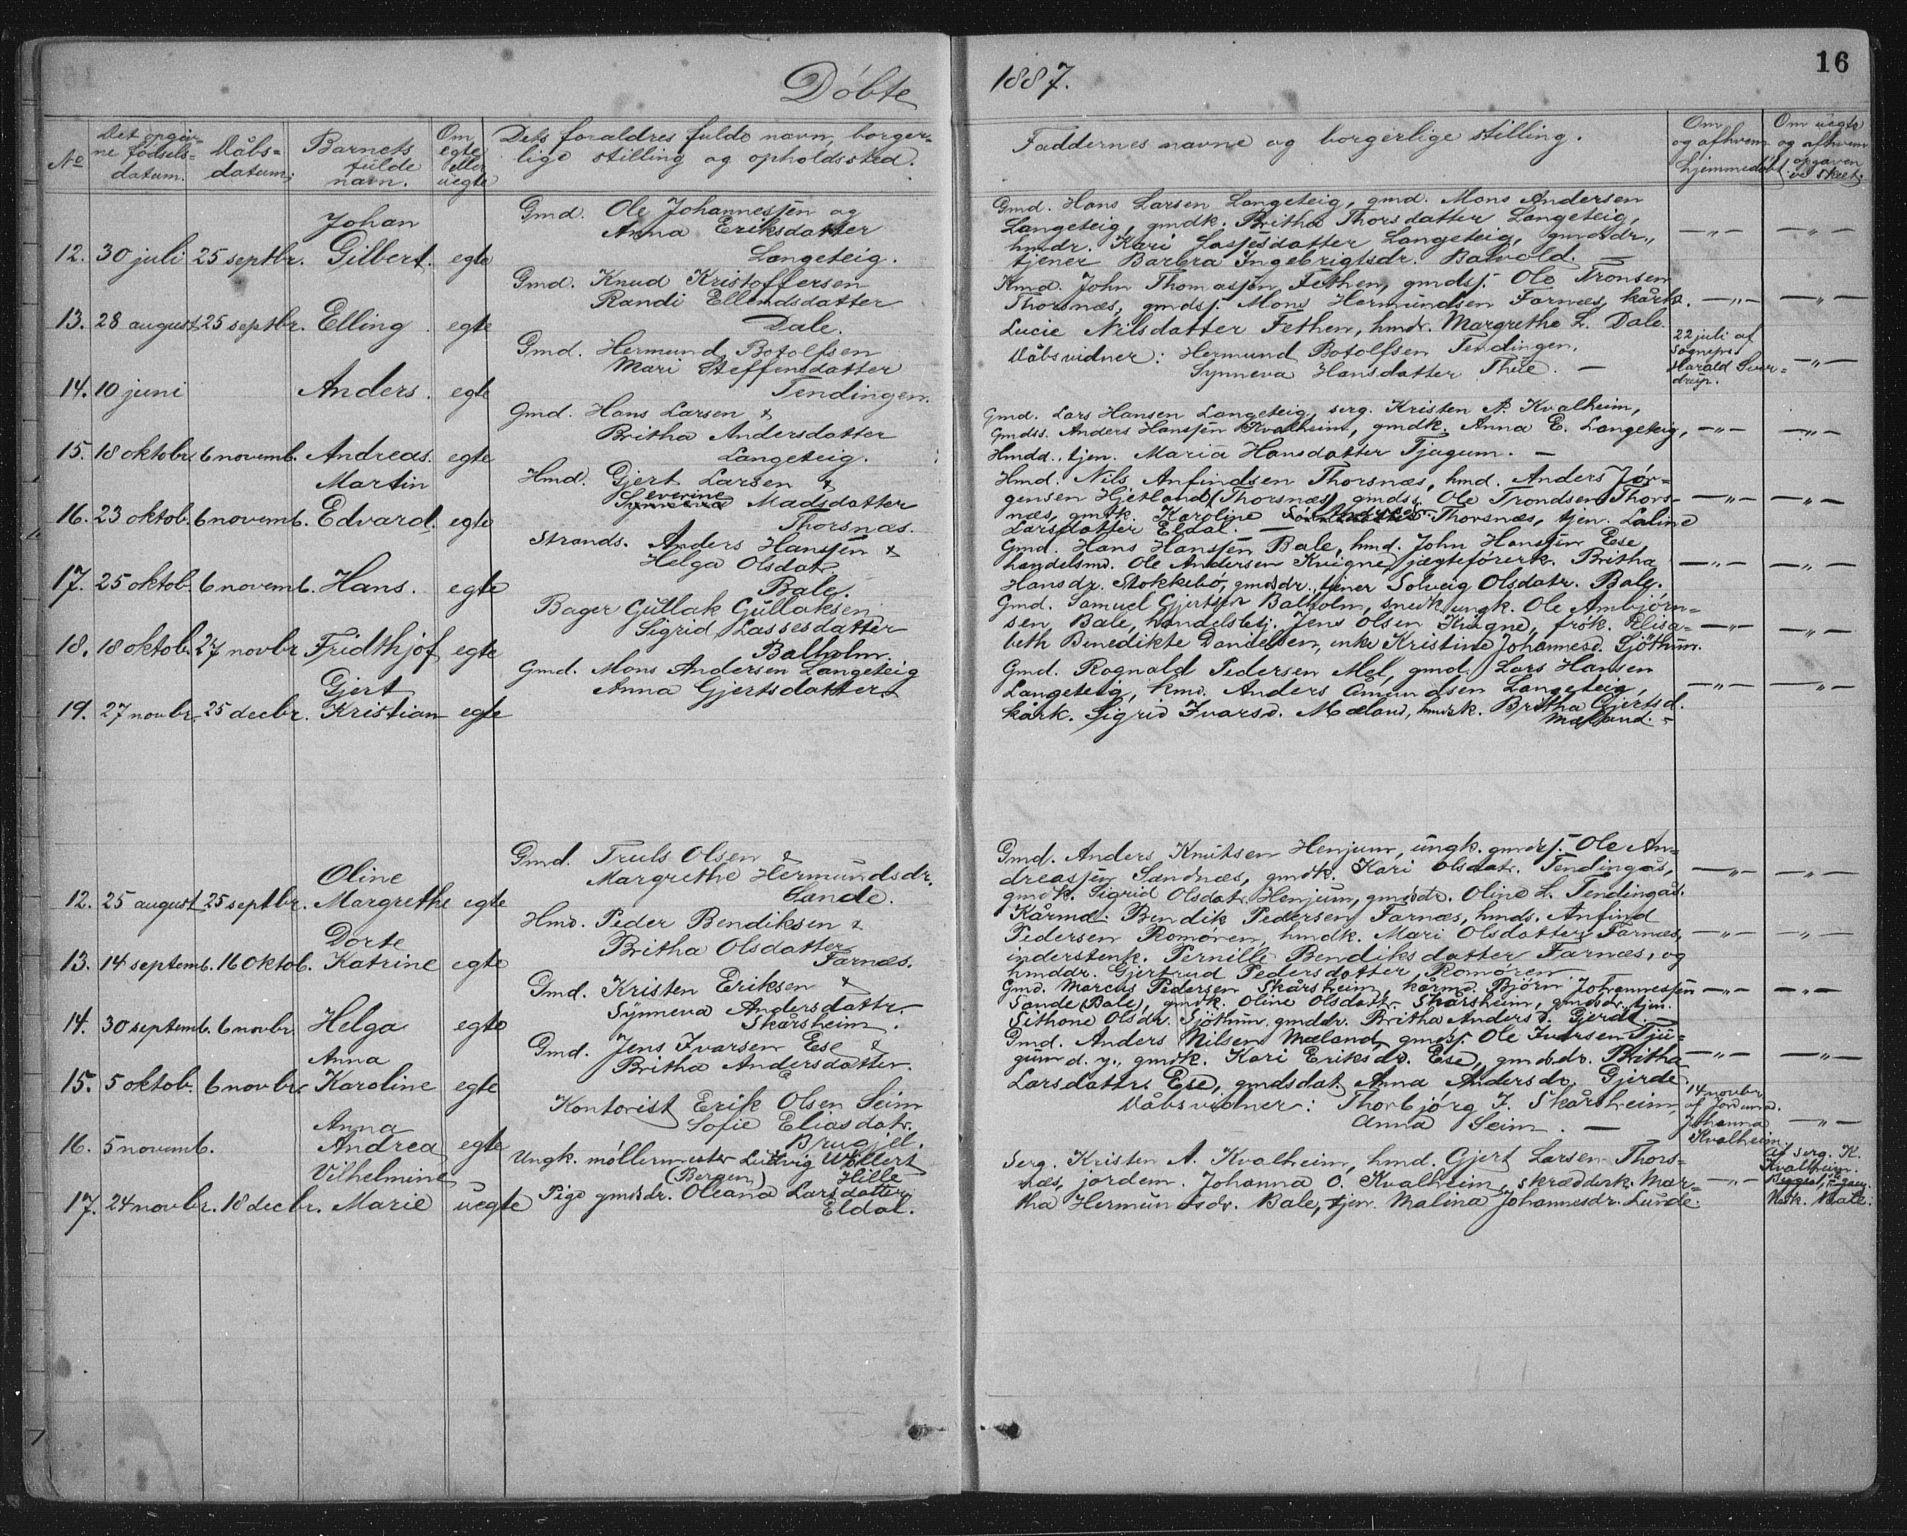 Døbte
1887.
16
No
Det opgiv-
ne fødsels-
datum.
Dåbs-
datum;
Barnets
fulde
navn.
Om
egte
eller
uegte
Dets forældres fulde navn, borger-
lige stilling og opholdssted.
Faddernes navne og borgerlige stilling.
Om
og af hvem
hjemmedøbt.
Om uegte
og af hvem
opgaven
er skeet.
12. 30 juli 25 septbr. Johan Gilbert. egte
Gmd. Ole Johannesjen og
Anna Eriksdatter
Langeteig.
Gmd. Hans Larsen Langeteig, gmd. Mons Andersen
Langeteig, gmdk. Britha Thorsdatter Langeteig,
hmdr. Kari Lasjesdatter Langeteig, gmdsdr.,
tjener Barbra Ingebrigtsdr. Balvold. —
—„— —„—
13. 28 august 25 septbr. Elling. egte
Gmd. Knud Kristoffersen
Randi Ellendsdatter
Dale.
Kmd. John Thomasjen Fethen, gmdsj. Ole Tronsen
Thorsnæs, gmdsj. Mons Hermundsen Farnæs, kårk.
Lucie Nilsdatter Fethen, hmdr. Margrethe L. Dale.
—„— —„—
14. 10 juni Anders. egte
Gmd. Hermund Botolfsen
Mari Steffensdatter
Tendingen.
Dåbsvidner: Hermund Botolfsen Tendingen,
Synneva Hansdatter Thue. —
22 juli af
Sognepr.
Harald Sver-
drup.
—„—
15. 18 oktobr. 6 novemb. Andreas. egte
Gmd. Hans Larsen &
Britha Andersdatter
Langeteig.
Gmd. Lars Hansen Langeteig, serg. Kristen A. Kvalheim,
Gmdss. Anders Hansjen Kvalheim, gmdk. Anna E. Langeteig,
Hmdd. tjen. Maria Hansdatter Tjugum. —
—„— —„—
16. 23 oktob. 6 novemb. Martin Edvard. egte
Hmd. Gjert Larsen &
Severine
Synneva Madsdatter
Thorsnæs.
Hmd. Nils Anfindsen Thorsnæs, hmd. Anders Jør-
gensen Hjetland (Thorsnæs), gmdsj. Ole Trondsen Thors-
næs, gmdk. Karoline Thorsnæs, tjen. Laline
Larsdatter Eldal. —
—„— —„—
17. 25 oktob. 6 novemb. Hans. egte
Strands. Anders Hansjen &
Helga Olsdatr.
Bale.
Gmd. Hans Hansjen Bale, hmd. John Hansjen Ese,
handelsmd. Ole Andersen Kvigne, jægteførerk. Britha
Hansdr. Stokkebø, gmdsdr. tjener Solveig Olsdatr. Bale.
—„— —„—
18. 18 oktob. 27 novbr. Fridthjof egte
Bager Gullak Gullaksen
Sigrid Lassesdatter
Balholm.
Gmd. Samuel Gjertsen Balholm, snedk. ungk. Ole Ambjørn-
sen Bale, handelsbetj. Jens Olsen Kvigne, frøk. Elisa-
beth Benedikte Danielsen, enke Kristine Johannesd. Sjøthun.
—„— —„—
19. 27 novbr. 25 decbr. Gjert Kristian egte
Gmd. Mons Andersen Langeteig
Anna Gjertsdatter
Gmd. Rognald Pedersen Mel, gmd. Lars Hansen
Langeteig, kmd. Anders Amundsen Langeteig,
kårk. Sigrid Ivarsd. Mæland, hmdsk. Britha Gjertsd.
Mæland. —
—„— —„—
12. 25 august 25 septbr. Oline Margrethe egte
Gmd. Truls Olsen &
Margrethe Hermundsdr.
Sande.
Gmd. Anders Knutsen Henjum, ungk. gmdsj. Ole An-
dreasjen Sandnæs, gmdk. Kari Olsdatr. Tendingås,
gmdk. Sigrid Olsdatr. Henjum, gmdsdr. Oline L. Tendingås.
—„— —„—
13. 14 septemb. 16 oktob. Dorte Katrine egte
Hmd. Peder Bendiksen &
Britha Olsdatter
Farnæs.
Kårmd. Bendik Pedersen Farnæs, hmds. Anfind
Pedersen Romøren, hmdk. Mari Olsdatter Farnæs,
inderstenk. Pernille Bendiksdatter Farnæs, og
hmddr. Gjertrud Pedersdatter, Romøren
—„— —„—
14. 30 septemb. 6 novbr. Helga egte
Gmd. Kristen Eriksen &
Synneva Andersdattr.
Skårsheim.
Gmd. Marcus Pedersen Skårsheim, kårmd. Bjørn Johannesjen
Sande (Bale), gmdk. Oline Olsdattr. Skårsheim, gmdsdr. tjen.
Sithone Olsdr. Sjøthun, gmddr. Britha Andersd. Gjerde. —
—„— —„—
15. 5 oktob. 6 novbr. Anna Karoline egte
Gmd. Jens Ivarsen Ese &
Britha Andersdatter.
Gmd. Anders Nilsen Mæland, gmdsj. Ole Iversen Tju-
gum d. y., gmdk. Kari Eriksdr. Ese, gmdsdr. Britha
Larsdatter Ese, gmdsdat. Anna Andersdr. Gjerde.
—„— —„—
16. 5 novemb. Anna Andrea egte
Kontorist Erik Olsen Seim
Sofie Eliasdatr.
Dåbsvidner: Thorbjørg J. Skårsheim,
Anna Seim. —
14 novbr.
af Jordmd.
Johanna
Kvalheim.
—„—
17. 24 novbr. 18 decbr. Vilhelmine Marie uegte
Ungk. møllermester Ludvig Wollert
(Bergen) Hille
Pige gmdsdr. Oleana Larsdatter
Eldal.
Serg. Kristen A. Kvalheim, hmd. Gjert Larsen Thors-
næs, jordem. Johanna O. Kvalheim, skrædderk. Mar-
tha Hermundsdr. Bale, tjen. Malina Johannesdr. Lunde.
—„—
Af serg. K.
Kvalheim.